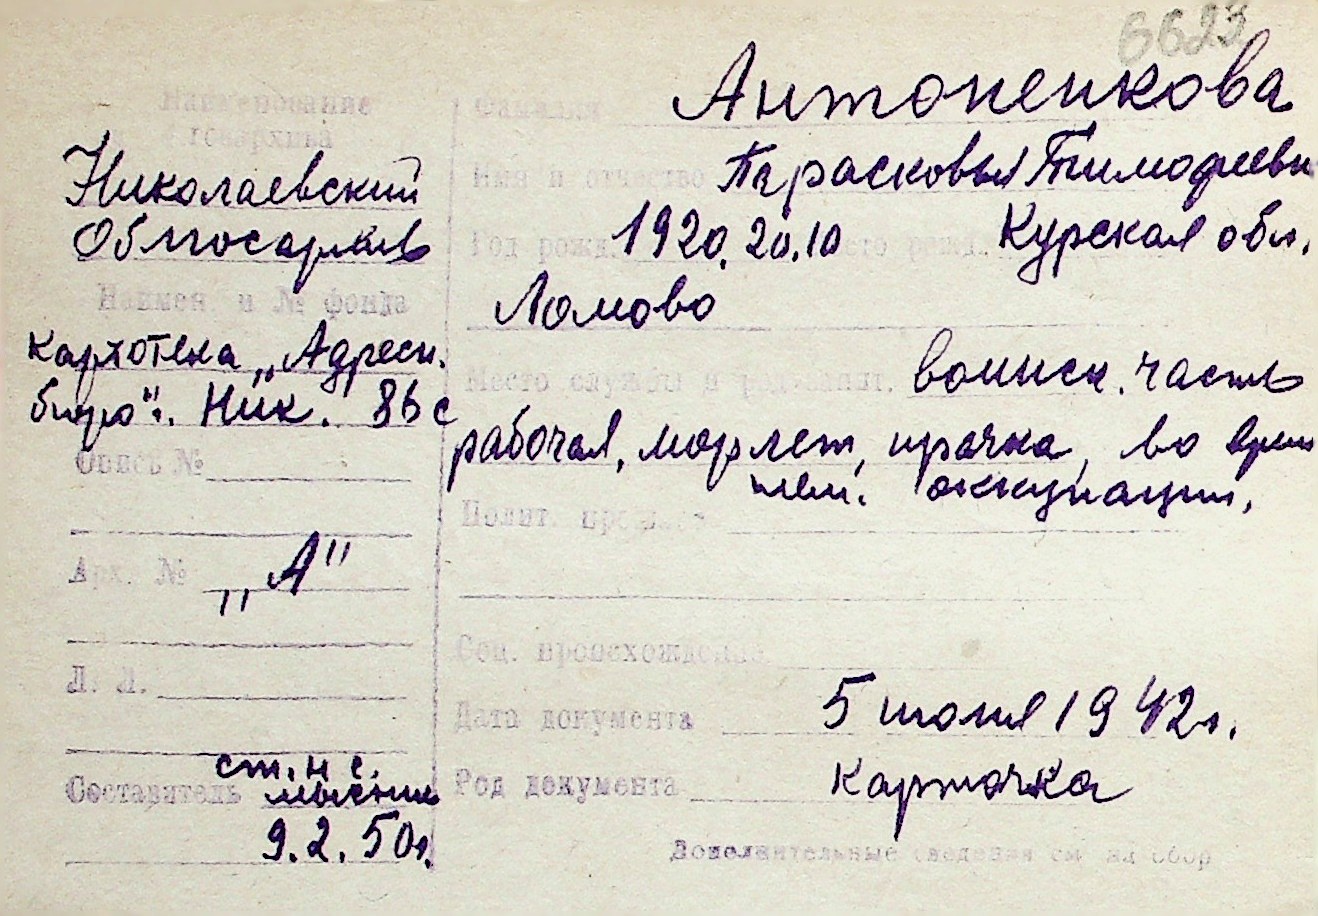 6623
Наименование
госархива
Николаевский
Облгосархив
Наимен и № фонда
картотека „Адресн.
бюро". Ник. 86 с
Опись №
Арх. № „А"
Л. Л.
ст. н с.
Составитель
9.2.50г.
Фамилия Антоненкова
Имя и отчество Парасковья Тимофеевн
Год рожд. 1920. 20.10 место рожд. Курская обл.
Ломово
Место службы и воинск. часть
рабочая, прачка, во врем
нем. оккупации.
Полит.
Соц. происхождение
Дата документа 5 июля 1942г.
Род документа карточка
Дополнительные сведения см на обор